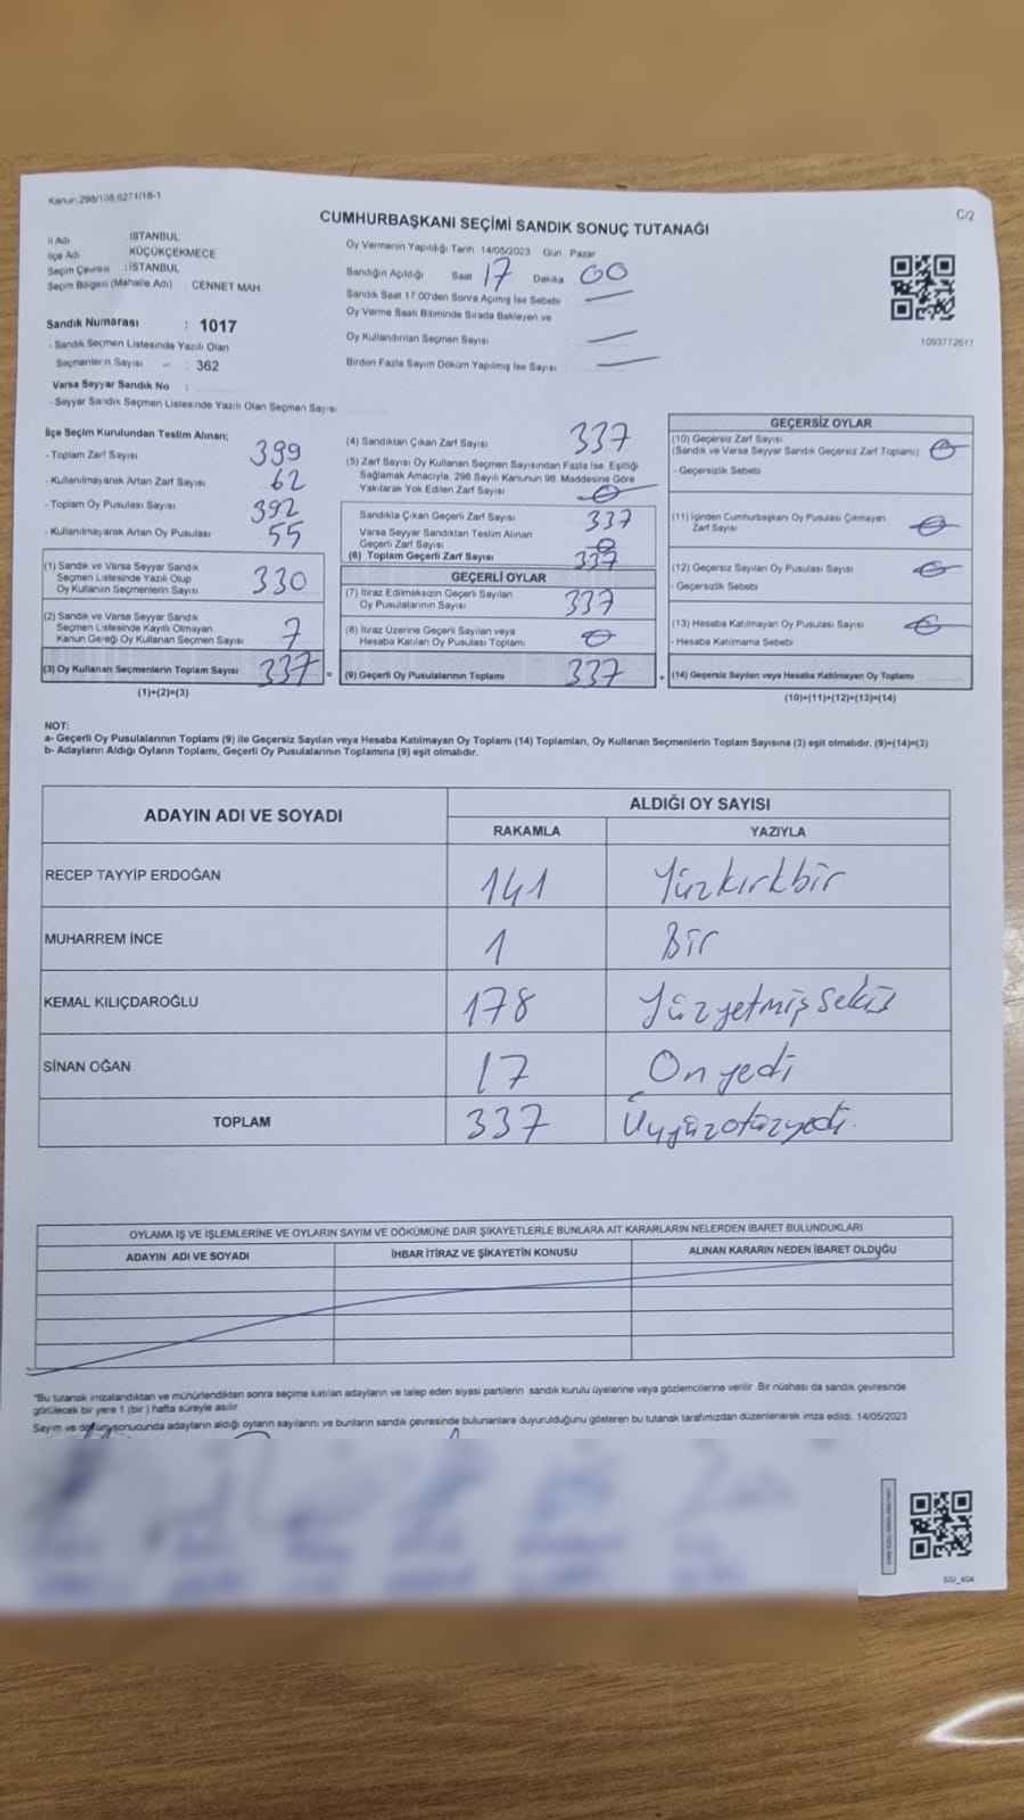 Kanun:298/108,6271/18-1
C/2
CUMHURBAŞKANI SEÇİMİ SANDIK SONUÇ TUTANAĞI
İl Adı : İSTANBUL
İlçe Adı : KÜÇÜKÇEKMECE
Seçim Çevresi : İSTANBUL
Seçim Bölgesi (Mahalle Adı) : CENNET MAH.
Sandık Numarası : 1017
- Sandık Seçmen Listesinde Yazılı Olan
Seçmenlerin Sayısı : 362
Varsa Seyyar Sandık No :
- Seyyar Sandık Seçmen Listesinde Yazılı Olan Seçmen Sayısı
Oy Vermenin Yapıldığı Tarih 14/05/2023 Gün Pazar
Sandığın Açıldığı Saat 17 Dakika 00
Sandık Saat 17.00'den Sonra Açılmış İse Sebebi
Oy Verme Saati Bitiminde Sırada Bekleyen ve
Oy Kullandırılan Seçmen Sayısı
Birden Fazla Sayım Döküm Yapılmış İse Sayısı
1093772617
İlçe Seçim Kurulundan Teslim Alınan;
- Toplam Zarf Sayısı 399
- Kullanılmayarak Artan Zarf Sayısı 62
- Toplam Oy Pusulası Sayısı 392
- Kullanılmayarak Artan Oy Pusulası 55
(1) Sandık ve Varsa Seyyar Sandık
Seçmen Listesinde Yazılı Olup
Oy Kullanan Seçmenlerin Sayısı 330
(2) Sandık ve Varsa Seyyar Sandık
Seçmen Listesinde Kayıtlı Olmayan
Kanun Gereği Oy Kullanan Seçmen Sayısı 7
(3) Oy Kullanan Seçmenlerin Toplam Sayısı 337
(1)+(2)=(3)
(4) Sandıktan Çıkan Zarf Sayısı 337
(5) Zarf Sayısı Oy Kullanan Seçmen Sayısından Fazla İse, Eşitliği
Sağlamak Amacıyla, 298 Sayılı Kanunun 98. Maddesine Göre
Yakılarak Yok Edilen Zarf Sayısı 0
Sandıkta Çıkan Geçerli Zarf Sayısı 337
Varsa Seyyar Sandıktan Teslim Alınan
Geçerli Zarf Sayısı 0
(6) Toplam Geçerli Zarf Sayısı 337
GEÇERLİ OYLAR
(7) İtiraz Edilmeksizin Geçerli Sayılan
Oy Pusulalarının Sayısı 337
(8) İtiraz Üzerine Geçerli Sayılan veya
Hesaba Katılan Oy Pusulası Toplamı 0
= (9) Geçerli Oy Pusulalarının Toplamı 337
GEÇERSİZ OYLAR
(10) Geçersiz Zarf Sayısı
(Sandık ve Varsa Seyyar Sandık Geçersiz Zarf Toplamı) 0
- Geçersizlik Sebebi
(11) İçinden Cumhurbaşkanı Oy Pusulası Çıkmayan
Zarf Sayısı 0
(12) Geçersiz Sayılan Oy Pusulası Sayısı 0
- Geçersizlik Sebebi
(13) Hesaba Katılmayan Oy Pusulası Sayısı 0
- Hesaba Katılmama Sebebi
+ (14) Geçersiz Sayılan veya Hesaba Katılmayan Oy Toplamı
(10)+(11)+(12)+(13)=(14)
NOT:
a- Geçerli Oy Pusulalarının Toplamı (9) ile Geçersiz Sayılan veya Hesaba Katılmayan Oy Toplamı (14) Toplamları, Oy Kullanan Seçmenlerin Toplam Sayısına (3) eşit olmalıdır. (9)+(14)=(3)
b- Adayların Aldığı Oyların Toplamı, Geçerli Oy Pusulalarının Toplamına (9) eşit olmalıdır.
ADAYIN ADI VE SOYADI ALDIĞI OY SAYISI
RAKAMLA YAZIYLA
RECEP TAYYİP ERDOĞAN 141 Yüzkırkbir
MUHARREM İNCE 1 Bir
KEMAL KILIÇDAROĞLU 178 Yüzyetmişsekiz
SİNAN OĞAN 17 Onyedi
TOPLAM 337 Üçyüzotuzyedi.
OYLAMA İŞ VE İŞLEMLERİNE VE OYLARIN SAYIM VE DÖKÜMÜNE DAİR ŞİKAYETLERLE BUNLARA AİT KARARLARIN NELERDEN İBARET BULUNDUKLARI
ADAYIN ADI VE SOYADI İHBAR İTİRAZ VE ŞİKAYETİN KONUSU ALINAN KARARIN NEDEN İBARET OLDUĞU
"Bu tutanak imzalandıktan ve mühürlendikten sonra seçime katılan adayların ve talep eden siyasi partilerin sandık kurulu üyelerine veya gözlemcilerine verilir. Bir nüshası da sandık çevresinde
görülecek bir yere 1 (bir) hafta süreyle asılır.
Sayım ve döküm sonucunda adayların aldığı oyların sayılarını ve bunların sandık çevresinde bulunanlara duyurulduğunu gösteren bu tutanak tarafımızdan düzenlenerek imza edildi. 14/05/2023